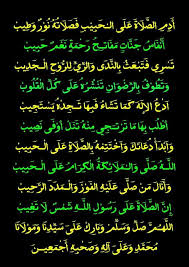 أَدِمِ الصَّلَاةَ عَلَى الْحَبِيبِ فَصَلَاتُهُ نُورٌ وَطِيبُ
أَنْفَاسُ جَنَّاتٍ مَفَاتِحُ رَحْمَةٍ نَغَمٌ حَبِيبُ
تَسْرِي فَتَبْعَثُ بِالنَّدَى وَالرِّيِّ لِلرُّوحِ الْجَدِيبِ
وَتَطُوفُ بِالرِّضْوَانِ تَنْشُرُهُ عَلَى كُلِّ الْقُلُوبِ
أُدْعُ الإِلٰهَ كَمَا تَشَاءُ فِيهَا تَجِدْهُ يَسْتَجِيبُ
أُطْلُبْ بِهَا مَا تَرْتَجِي مِنْهُ تَنَلْ أَوْفَى نَصِيبِ
وَابْدَأْ دُعَائَكَ وَاخْتَتِمْهُ بِالصَّلَاةِ عَلَى الْحَبِيبِ
اللهُ صَلَّى وَالْمَلَائِكَةُ الْكِرَامُ عَلَى الْحَبِيبِ
وَأَنَالَ مَنْ صَلَّى عَلَيْهِ الْفَوْزَ وَالْمَدَدَ الرَّحِيبَ
إِنَّ الصَّلَاةَ عَلَى رَسُولِ اللهِ شَمْسٌ لَا تَغِيبُ
اللَّهُمَّ صَلِّ وَسَلِّمْ وَبَارِكْ عَلَى سَيِّدِنَا وَمَوْلَانَا
مُحَمَّدٍ وَعَلَى آلِهِ وَصَحْبِهِ أَجْمَعِينَ